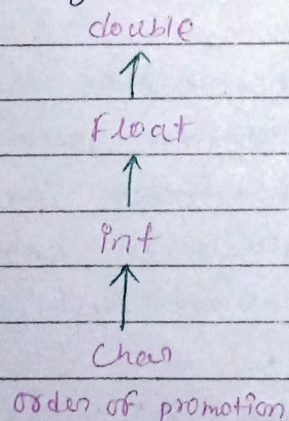 double
Float
int
Char
order of promotion